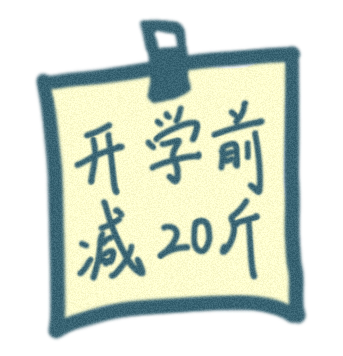 开学前
减20斤